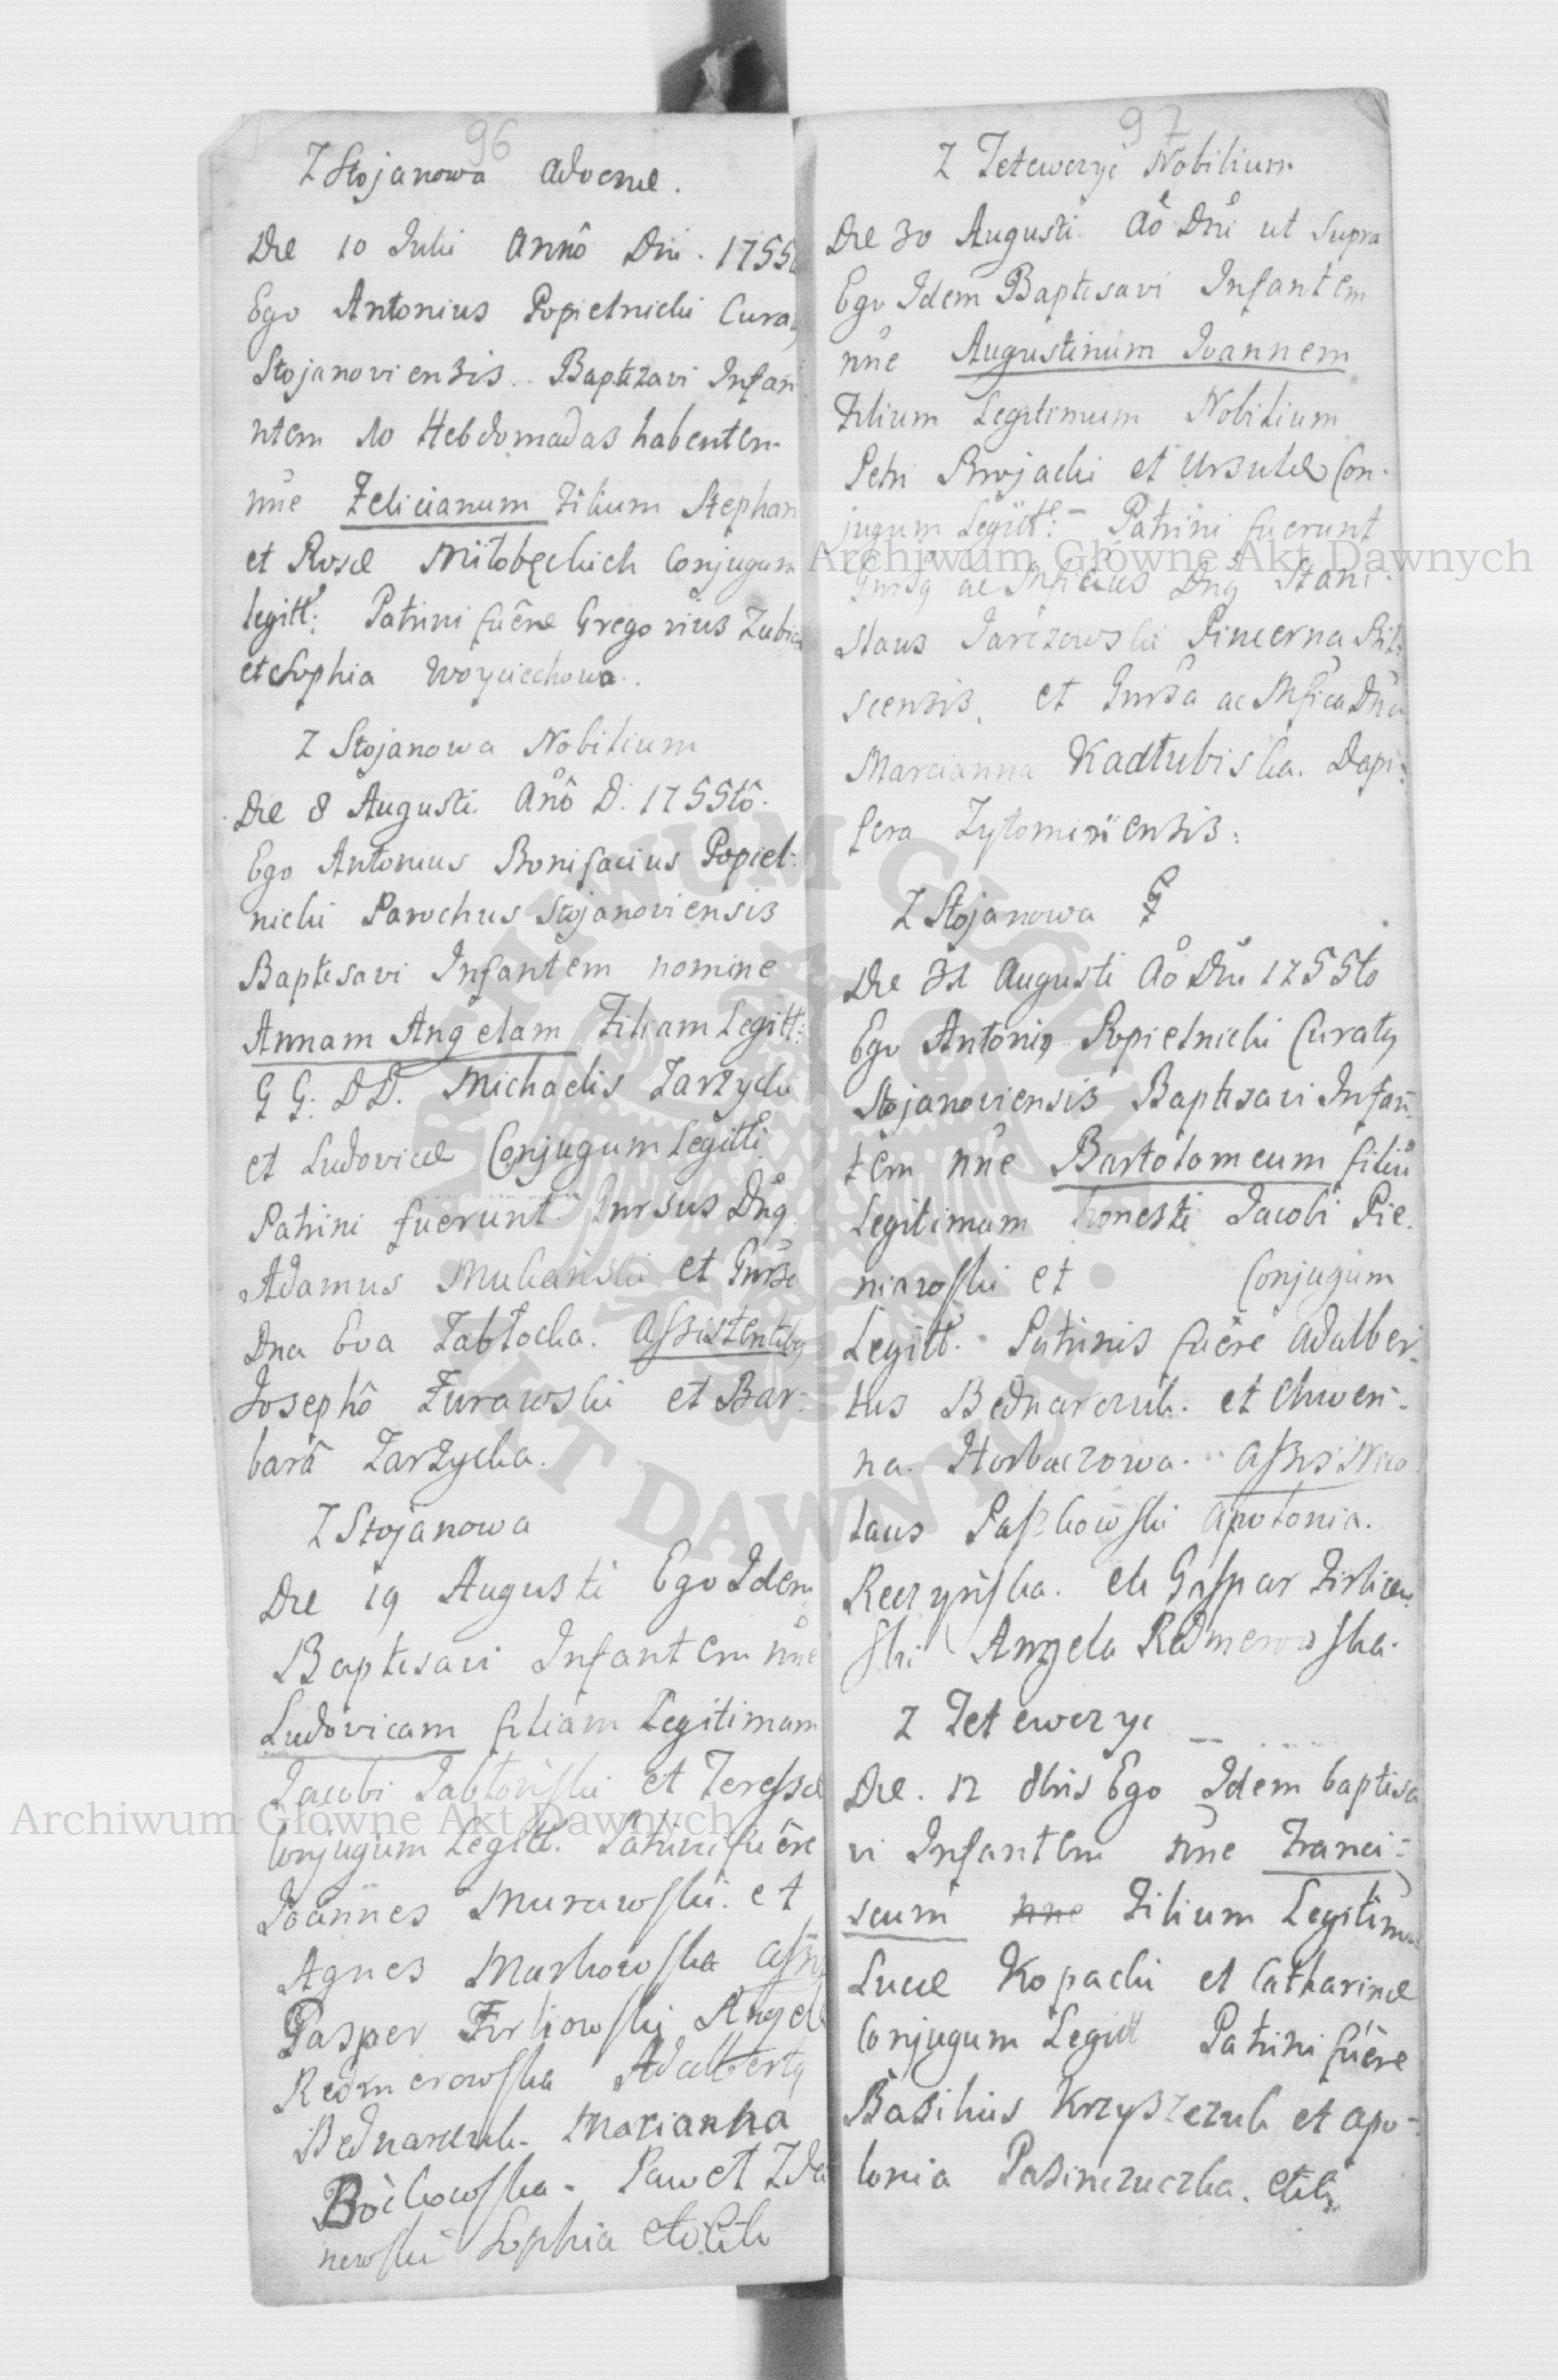 96
Z Stojanowa Advenæ.
Die 10 Julii Annô Dni. 1755
Ego Antonius Popielnicki Curat9
Stojanoviensis. Baptizavi Infan
ntem 10 Hebdomadas habentem
nne Felicianum Filium Stephan
et Rosæ Miłobęckich Conjugum
legitt: Patrini fuêre Gregorius Zubic
et Sophia Woyciechowa.
Z Stojanowa Nobilium
Die 8 Augusti Anô D: 1755tô.
Ego Antonius Bonifacius Popiel:
nicki Parochus Stojanoviensis
Baptisavi Infantem nomine
Annam Angelam Filiam Legitt:
G G: DD. Michaelis Zarzycki
et Ludovicæ Conjugum Legitti
Patrini fuerunt Gnrsus Dng
Adamus et Gnrsa
Dna Eva Zabłocka. Assistentib9
Josephô Zurawski et Bar:
barâ Zarzycka.
Z Stojanowa
Die 19 Augusti Ego Idem
Baptisavi Infantem nne
Ludovicam filiam Legitimam
Jacobi Jabłoński et Teressæ
Conjugum Legitt. Patrini fuêre
Joannes Murawski. et
Agnes Markowska Assis
Gasper Firlicowski Angela
Redmerowska Adalbert9
Bednarczuk. Marianna
Boćkowska. Paweł Zda
newski Sophia
97
Z Tetewczyc Nobilium
Die 30 Augusti Aô Dni ut supra
Ego Idem Baptisavi Infantem
nne Augustinum Joannem
Filium Legitimum Nobilium
Petri Brojacki et Ursulæ Con-
jugum Legitt: Patrini fuerunt
Gnrs9 ac Mficus Dn9 Stani-
slaus Jarczowski Pincerna
scensis, et Gnrsa ac Mfica Dna
Marcianna Kadłubiska. Dapi:
fera Zytomiriensis:
Z Stojanowa
Die 31 Augusti Aô Dni 1755to
Ego Antoni9 Popielnicki Curat9
Stojanoviensis Baptisavi Infan-
tem nne Bartolomeum filiu
Legitimum honesti Jacobi Pie-
niawski et Conjugum
Legitt. Patrinis fuêre Adalber-
tus Bednarczuk. et Chwen-
na. Horbaczowa. Assis Nico
laus Paszkowski Apolonia.
Reczyńska. et Gaspar Firlicow
ski Angela Redmerowska.
Z Tetewczyc
Die. 12 8bris Ego Idem baptisa
vi Infantem nne Franci-
scum nne Filium Legitimu
Lucæ Kopacki et Catharinæ
Conjugum Legitt Patrini fuêre
Basilius Krzyszczuk et Apo-
lonia Pasinczuczka.
Archiwum Główne Akt Dawnych
Archiwum Główne Akt Dawnych
ARCHIWUM GŁÓWNE AKT DAWNYCH